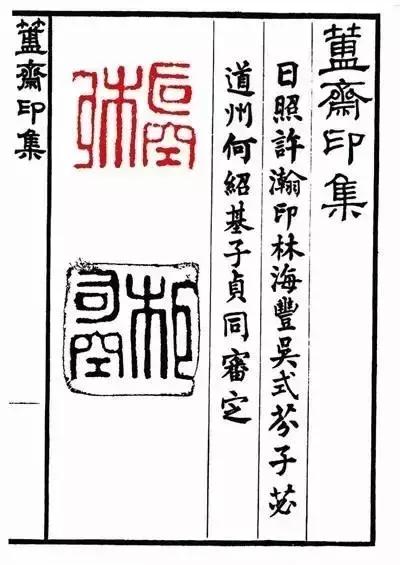 簠齋印集
日照許瀚印林海豐吳式芬子苾
道州何紹基子貞同審定
司空
簠齋印集